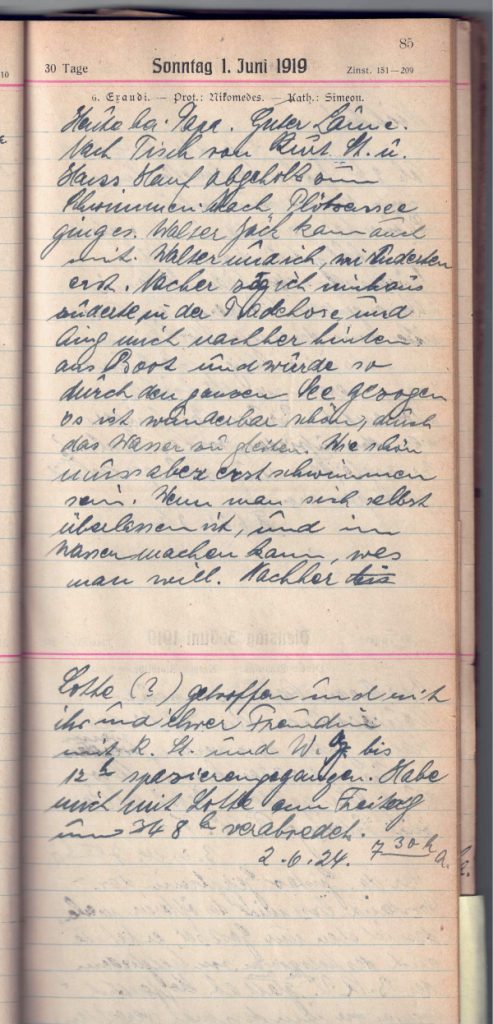 85
30 Tage
Sonntag 1. Juni 1919
Zinst. 151—209
10
6. Exaudi. — Prot.: Nikomedes. — Kath.: Simeon.
Guter Laune.
Nach Tisch von Kurt St. u.
Hans Hauf abgeholt zum
Schwimmen. Nach Plötzensee
ginges. Walter Jäck kam auch
mit. Walter und ich, wir ruderten
erst. Nacher zog ich mich aus
ruderte in der Badehose und
hing mich nachher hinten
ans Boot und wurde so
durch den ganzen See gezogen
Es ist wunderbar schön, durch
das Wasser zu gleiten. Wie schön
muss aber erst schwimmen
sein. Wenn man sich selbst
überlassen ist, und im
Wasser machen kann, was
man will. Nachher
Lotte (?) getroffen und mit
ihr und ihrer Freundin
mit K. St. und W. J. bis
12 h spazierengegangen. Habe
mich mit Lotte am Freitag
um 3/4 8 h verabredet.
2.6.24. 7 30 h a.